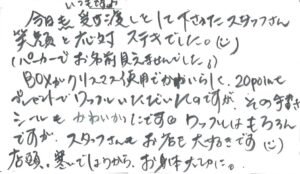 いつもですが
今日も受け渡しをして下さったスタッフさん
笑顔と応対 ステキでした。
(パーカーでお名前見えませんでした。)
BOXがクリスマス使用でかわいらしく、20point
プレゼントでワッフルいただいたのですが、その手書き
シールもかわいかったです。ワッフルはもちろん
ですが、スタッフさんもお店も大好きです
店頭。寒いでしょうから、お身体大切に。